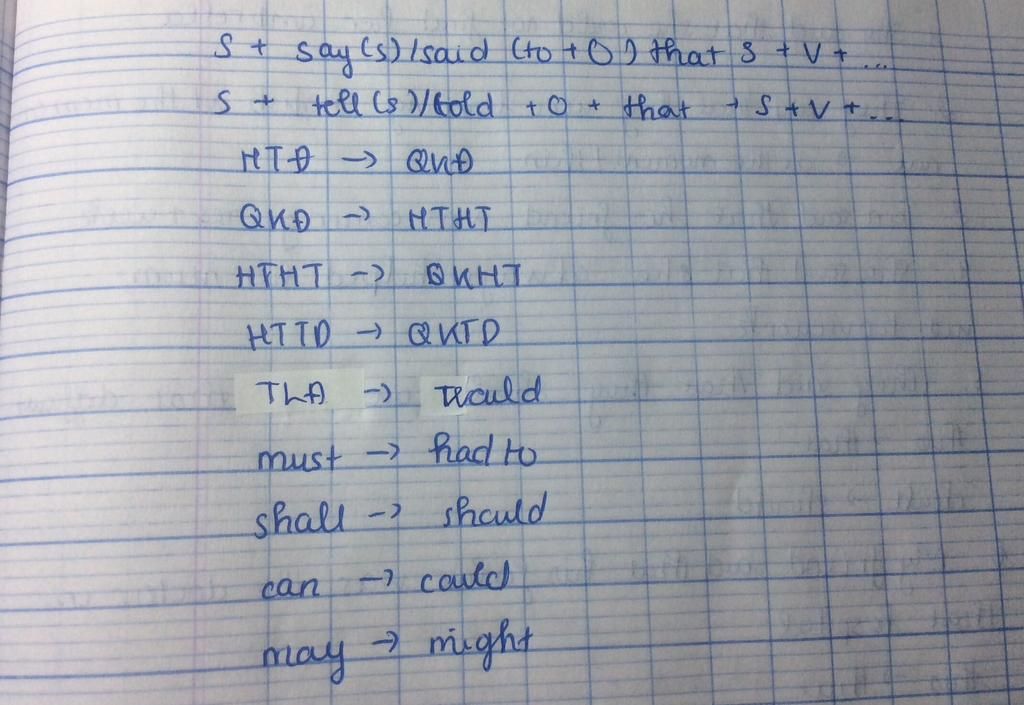 S + say(s)/said (to + O) that S + V + ...
S + tell(s)/told + O + that + S + V + ...
HTĐ → QKĐ
QKĐ → HTHT
HTHT → QKHT
HTTD → QKTD
TLĐ → would
must → had to
shall → should
can → could
may → might